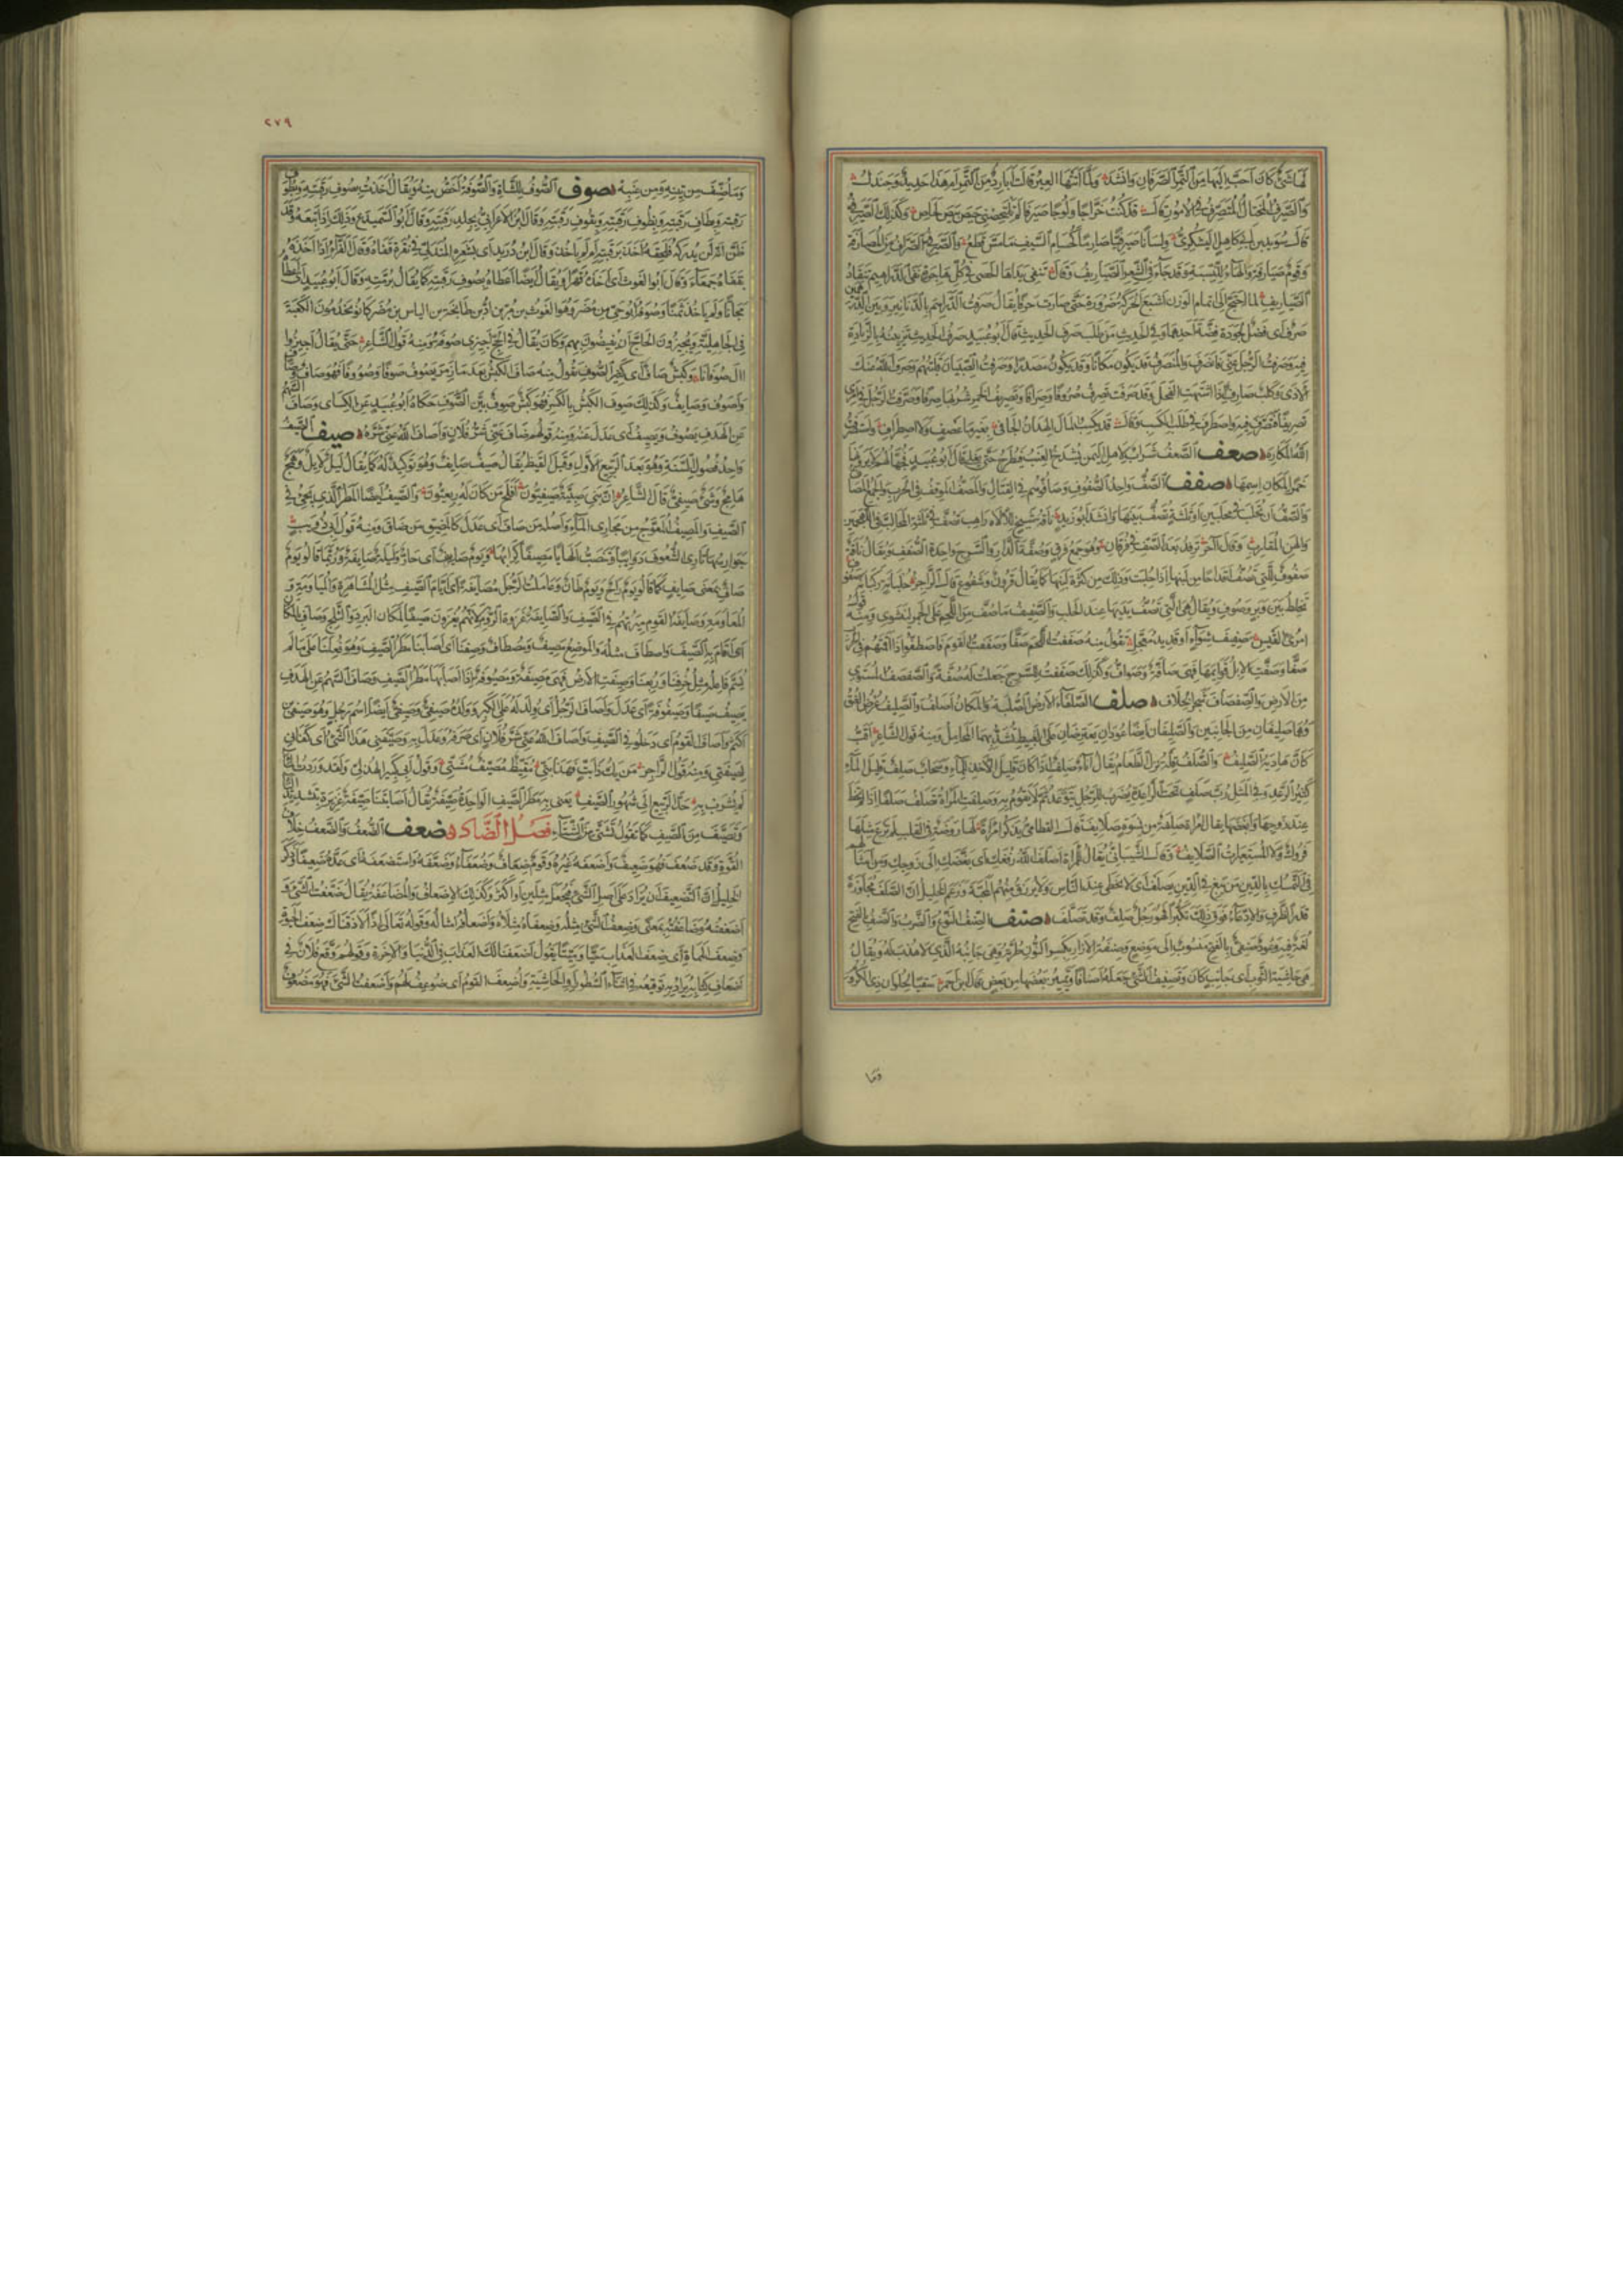 لها شئ كان احب اليها من التمر الصرفان وانشد ولما اتتها العير قالت ابارد من التمر ام هذا حديد وجندل
والصيرف المحتال المتصرف في الامور قال قد كنت خراجا ولوجا صيرفا لم تلتحصني حيص بيص لحاص وكذلك الصيرفي
قال سويد بن ابي كاهل اليشكري ولسانا صيرفيا صارما كحسام السيف ما مس قطع والصيرفي الصراف من المصارفة
وقوم صيارفة والهاء للنسبة وقد جاء في الشعر الصياريف وقال تنفي يداها الحصى في كل هاجرة نفي الدراهيم تنقاد
الصياريف لما احتج الى اتمام الوزن اشبع الحركة ضرورة حتى صارت حرفا يقال صرفت الدراهم بالدنانير وبين الدرهمين
صرف اى فضل لجودة فضة احدهما وفي الحديث من طلب صرف الحديث قال ابو عبيد صرف الحديث تزيينه بالزيادة
فيه وصرفت الرجل عني فانصرف والمنصرف قد يكون مكانا وقد يكون مصدرا وصرفت الصبيان قلبتهم وصرف الله عنك
الاذى وكلبة صارف اذا اشتهت الفحل وقد صرفت تصرف صروفا وصرافا وتصريف الخمر شربها صرفا وصرفت الرجل في امرى
تصريفا فتصرف فيه واصطرف في طلب الكسب وقال قد يكسب المال الهدان الجافي بغير ما عصف ولا اصطراف واستصرفت
الله المكاره صعف الصعف شراب لاهل اليمن يشدخ العنب فيطرح حتى يغلي قال ابو عبيد فجهالهم لا يرونها
خمرا لمكان اسمها صفف الصف واحد الصفوف وصافوهم في القتال والمصف الموقف في الحرب والجمع المصاف
والصف ان تحلب في محلبين او ثلاثة تصف بينها وانشد ابو زيد ناقة شيخ للاله راهب تصف في ثلاثة المحالب في اللهجمين
والهن المقارب وقال آخر ترفد بعد الصف في فرقان وهو جمع فرق وصفة الدار والسرج واحدة الصفف ويقال ناقة
صفوف للتي تصف اقداحا من لبنها اذا حلبت وذلك من كثرة لبنها كما يقال قرون وشفوع قال الراجز حلبانة ركبانة صفوف
تخلط بين وبر وصوف ويقال هي التي تصف يديها عند الحلب والصفيف ما صف من اللحم على الجمر لينشوى ومنه قول
امرئ القيس صفيف شواء او قدير معجل تقول منه صففت اللحم صفا وصففت القوم فاصطفوا اذا اقمتهم في الحرب
صفا وصفت الابل قوائمها فهي صافة وصواف وكذلك صففت للسرج جعلت له صفة والصفصف المستوي
من الارض والصفصاف شجر الخلاف صلف الصلفاء الارض الصلبة والمكان اصلف والصليف عرض العنق
وهما صليفان من الجانبين والصليفان ايضا عودان يعترضان على الغبيط تشد بهما المحامل ومنه قول الشاعر اقب
كان هادية الصليف والصلف قلة نزل الطعام يقال اناء صلف اذا كان قليل الاخذ للماء وسحاب صلف قليل الماء
كثير الرعد وفي المثل رب صلف تحت الراعدة يضرب للرجل يتوعد ثم لا يقوم به وصلفت المراة تصلف صلفا اذا لم تحظ
عند زوجها وابغضها يقال امراة صلفة من نسوة صلايف قال القطامي يذكر امراة لها روضة في القلب لم ترع مثلها
فروك ولا المستعبرات الصلايف وقال الشيباني يقال للمراة اصلف الله رفغك اى بغضك الى زوجك ومن امثالهم
في التمسك بالدين من يبغ في الدين يصلف اى لا يحظى عند الناس ولا يرزق منهم المحبة وزعم الخليل ان الصلف مجاوزة
قدر الظرف والادعاء فوق ذلك تكبرا فهو رجل صلف وقد تصلف صنف الصنف النوع والضرب والصنف بالفتح
لغة فيه وعود صنفي بالفتح منسوب الى موضع وصنفة الازار بكسر النون طرته وهي جانبه الذي لا هدب له ويقال
هي حاشية الثوب اى جانب كان وتصنيف الشئ جعله اصنافا وتمييز بعضها من بعض قال ابن احمر سقيا لحلوان ذي الكروم
وما
٢٧٩
وما صنف من تينه ومن عنبه صوف الصوف للشاة والصوفة اخص منه ويقال اخذت بصوف رقبته وبطوف
رقبته وبطاف رقبته وبظوف رقبته وبقوف رقبته وقال ابن الاعرابي بجلد رقبته وقال ابو السميدع وذلك اذا تبعه وقد
ظن ان لن يدركه فلحقه اخذ برقبته ام لم ياخذ وقال ابن دريد اى بشعره المتدلي في نقرة قفاه وقال الفراء اذا اخذه
بقفاه جمعاء وقال ابو الغوث اى اخذه قهرا ويقال ايضا اعطاه بصوف رقبته كما يقال برمته وقال ابو عبيد اى اعطاه
مجانا ولم ياخذ ثمنا وصوفة ابو حي من مضر وهو الغوث بن مر بن اد بن طابخة بن الياس بن مضر كانوا يخدمون الكعبة
في الجاهلية ويجيزون الحاج اى يفيضون بهم وكان يقال في الحج اجيزى صوفة ومنه قول الشاعر حتى يقال اجيزوا
ال صوفانا وكبش صاف اى كثير الصوف تقول منه صاف الكبش بعد ما زمر يصوف صوفا وصووفا فهو صاف وصاف
واصوف وصايف وكذلك صوف الكبش بالكسر فهو كبش صوف بين الصوف حكاه ابو عبيد عن الكساى وصاف السهم
عن الهدف يصوف ويصيف اى عدل عنه ومنه قولهم صاف عني شر فلان واصاف الله عني شره صيف الصيف
واحد فصول السنة وهو بعد الربيع الاول وقبل القيظ يقال صيف صايف وهو توكيد له كما يقال ليل لايل وهمج
هامج وشئ صيفي قال الشاعر ان بني صبية صيفيون افلح من كان له ربعيون والصيف ايضا المطر الذي يجئ في
الصيف والمصيف المعوج من مجارى الماء واصله من صاف اى عدل كالمضيق من ضاق ومنه قول ابي ذؤيب
جوارسها تارى الشعوف دوايبا وتنصب الهابا مصيفا كرابها ويوم صايف اى حار وليلة صايفة وربما قالوا يوم
صاف بمعنى صايف كما قالوا يوم راح ويوم طان وعاملت الرجل مصايفة اى ايام الصيف مثل المشاهرة والمياومة و
المعاومة وصايفة القوم ميرتهم في الصيف والصايفة غزوة الروم لانهم يغزون صيفا لمكان البرد والثلج وصاف بالمكان
اى اقام به الصيف واصطاف مثله والموضع مصيف ومصطاف وصفنا اى اصابنا مطر الصيف وهو فعلنا على ما لم
يسم فاعله مثل خرفنا وربعنا وصيفت الارض فهي مصيفة ومصيوفة اذا اصابها مطر الصيف وصاف السهم عن الهدف
يصيف صيفا وصيفوفة اى عدل واصاف الرجل اى ولد له على الكبر وولده صيفي وصيفي ايضا اسم رجل وهو صيفي بن
اكثم واصاف القوم اى دخلوا في الصيف واصاف الله عني شر فلان اى صرفه وعدل به وصيفني هذا الشئ اى كفاني
لصيفتي ومنه قول الراجز من يك ذا بت فهذا بتي مقيظ مصيف مشتي وقول ابي كبير الهذلي ولقد وردت الماء
لم يشرب به حد الربيع الى شهور الصيف يعني به مطر الصيف الواحدة صيفة يقال اصابتنا صيفة غزيرة بتشديد الياء
وتصيف من الصيف كما تقول تشتى من الشتاء فصل الضاد ضعف الضعف والضعف خلاف
القوة وقد ضعف فهو ضعيف واضعفه غيره وقوم ضعاف وضعفاء وضعفة واستضعفه اى عده ضعيفا وذكر
الخليل ان التضعيف ان يزاد على اصل الشئ فيجعل مثلين او اكثر وكذلك الاضعاف والمضاعفة يقال ضعفت الشئ و
اضعفته وضاعفته بمعنى وضعف الشئ مثله وضعفاه مثلاه واضعافه امثاله وقوله تعالى اذا لاذقناك ضعف الحيوة
وضعف الممات اى ضعف العذاب حيا وميتا يقول اضعفنا لك العذاب في الدنيا والاخرة وقولهم وقع فلان في
اضعاف كتابه يراد به توقيعه في اثناء السطور او الحاشية واضعف القوم اى ضوعف لهم واضعفت الشئ فهو مضعوف